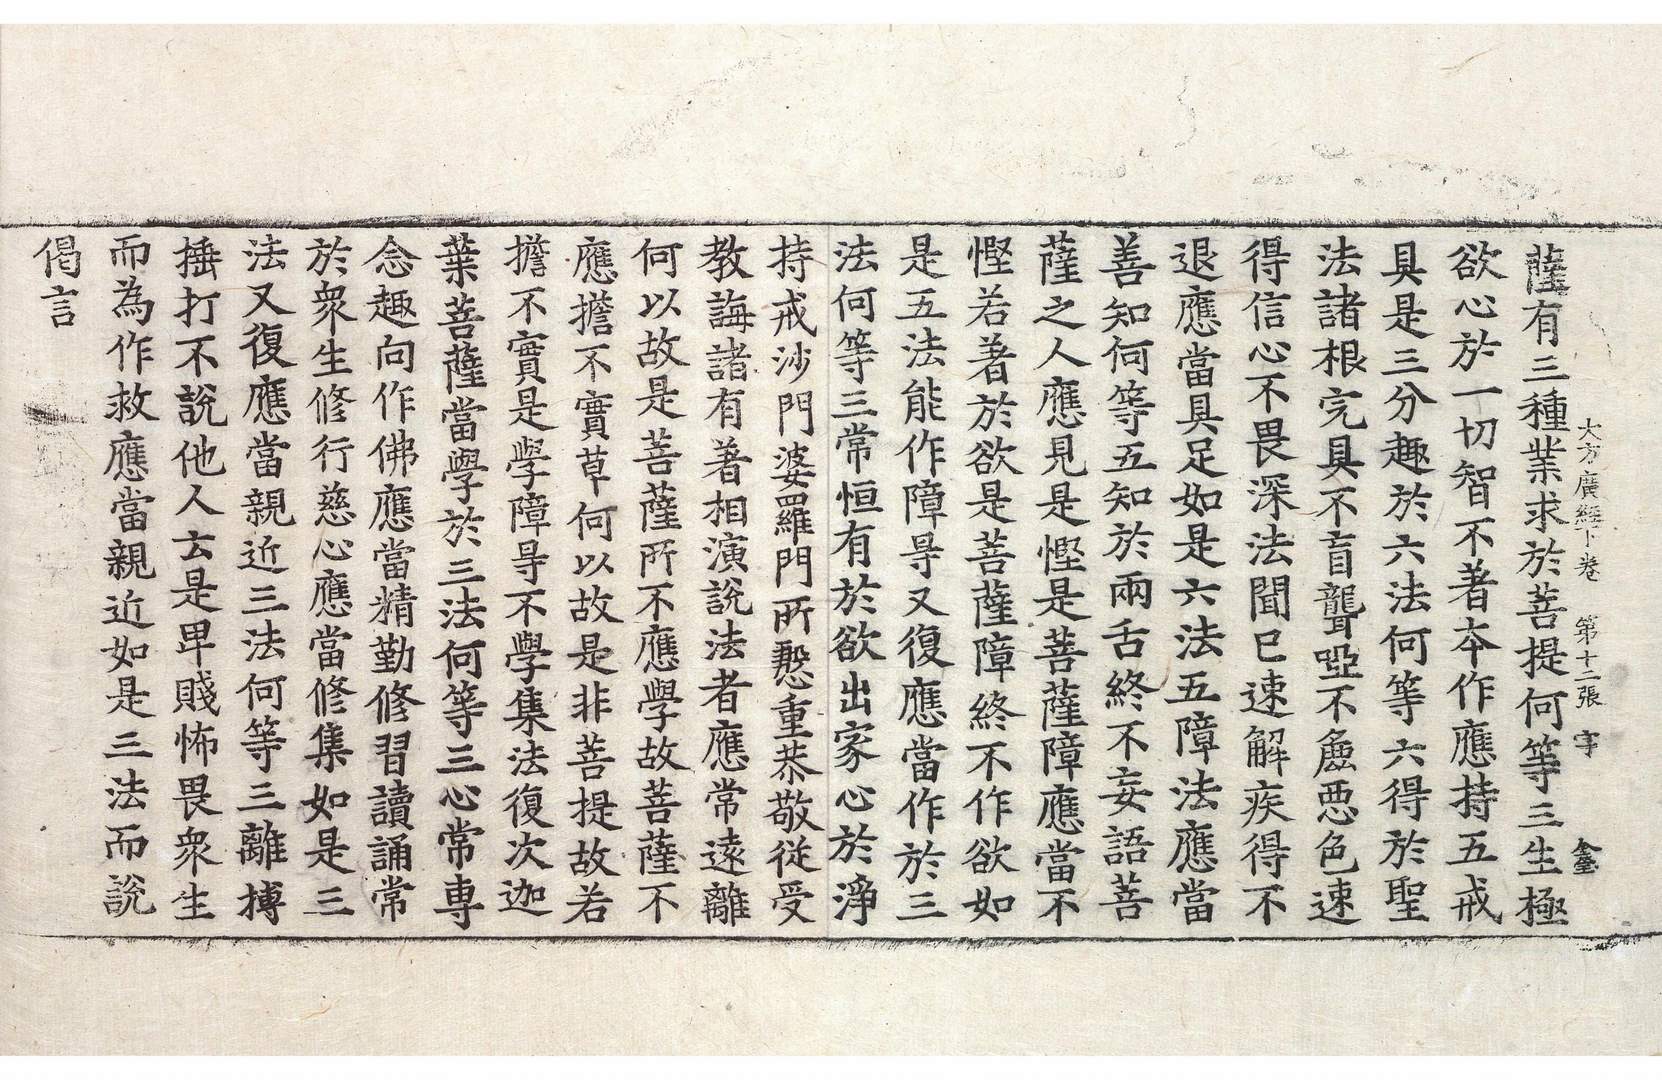 大方廣經下卷 第十二張 字
薩有三種業求於菩提何等三生極
欲心於一切智不著本作應持五戒
具是三分趣於六法何等六得於聖
法諸根完具不盲聾啞不麁惡色速
得信心不畏深法聞已速解疾得不
退應當具足如是六法五障法應當
善知何等五知於兩舌終不妄語菩
薩之人應見是慳是菩薩障應當不
慳若著於欲是菩薩障終不作欲如
是五法能作障㝵又復應當作於三
法何等三常恒有於欲出家心於淨
持戒沙門婆羅門所慇重恭敬從受
教誨諸有著相演說法者應常遠離
何以故是菩薩所不應學故菩薩不
應擔不實草何以故是非菩提故若
擔不實是學障㝵不學集法復次迦
葉菩薩當學於三法何等三心常專
念趣向作佛應當精勤修習讀誦常
於衆生修行慈心應當修集如是三
法又復應當親近三法何等三離搏
捶打不說他人去是卑賤怖畏衆生
而為作救應當親近如是三法而說
偈言